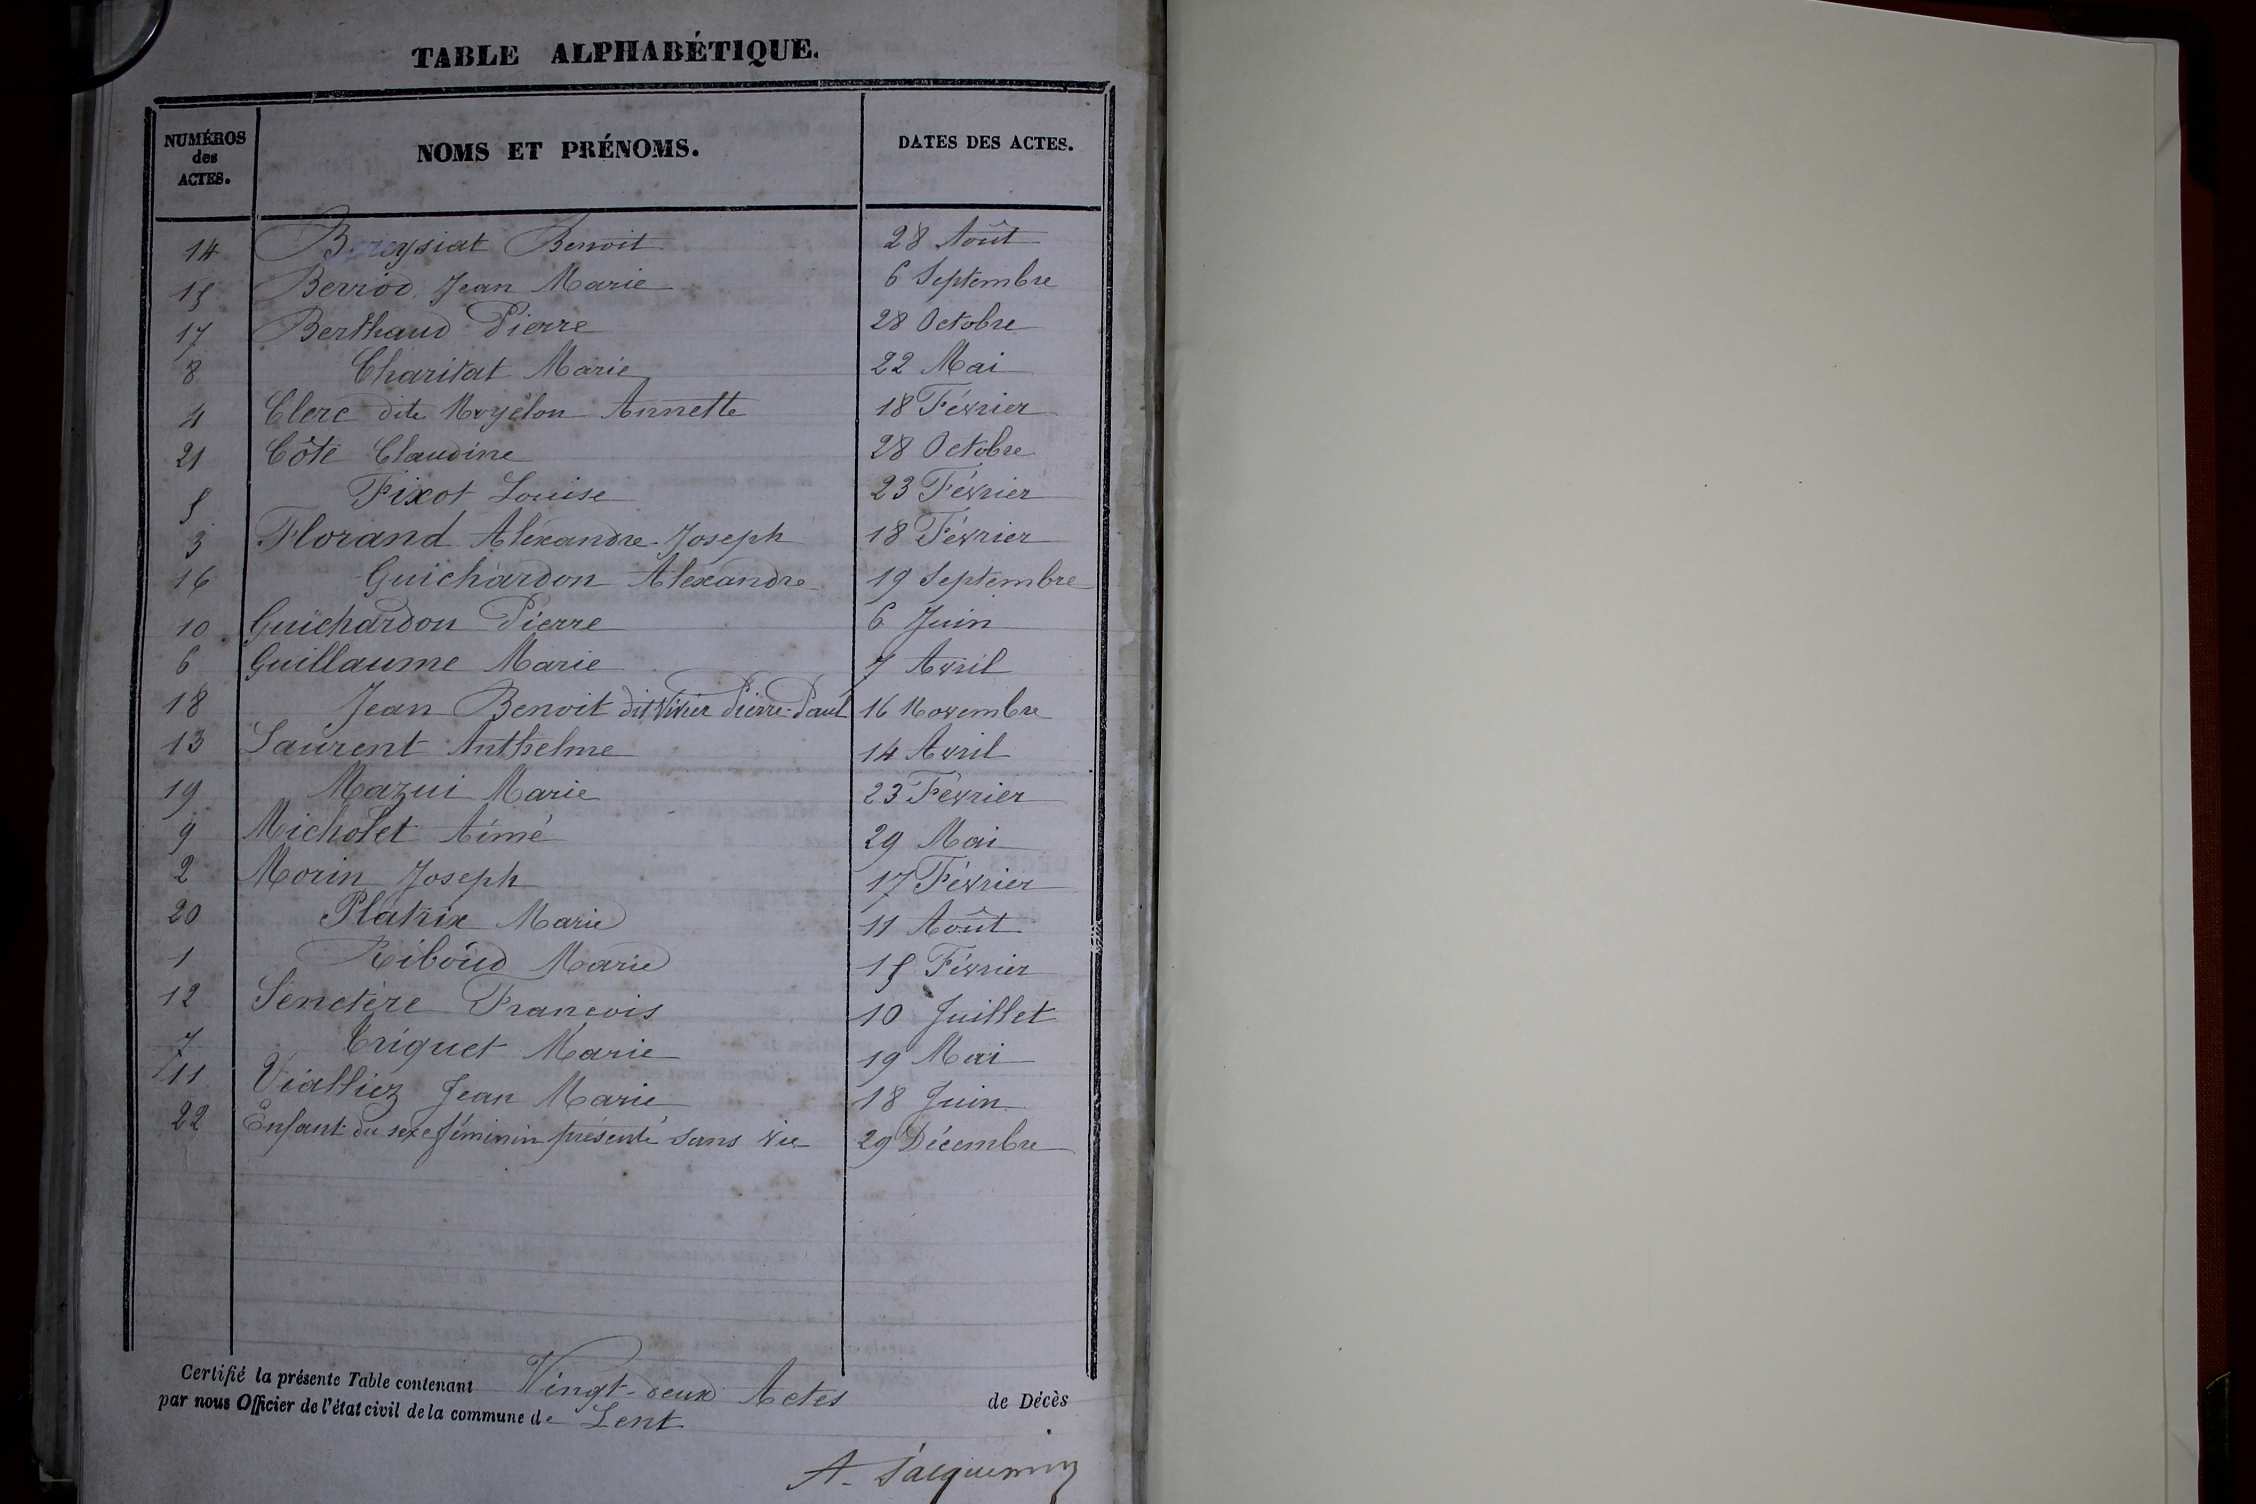 TABLE ALPHABÉTIQUE.
NUMÉROS des ACTES. NOMS ET PRÉNOMS. DATES DES ACTES.
14 Bereysiat Benoit 28 Août
15 Berrod Jean Marie 6 Septembre
17 Berthaud Pierre 28 Octobre
8 Charitat Marie 22 Mai
4 Clerc dite Moyélon Annette 18 Février
21 Côte Claudine 28 Octobre
5 Fixot Louise 23 Février
3 Florand Aléxandre Joseph 18 Février
16 Guichardon Alexandre 19 Septembre
10 Guichardon Pierre 6 Juin
6 Guillaume Marie 7 Avril
18 Jean Benoit dit Vivier Pierre-Paul 16 Novembre
13 Laurent Anthelme 14 Avril
19 Mazui Marie 23 Février
9 Micholet Aimé 29 Mai
2 Morin Joseph 17 Février
20 Platrix Marie 11 Août
1 Riboud Marie 15 Février
12 Senetère François 10 Juillet
7 Triquet Marie 19 Mai
11 Vialliez Jean Marie 18 Juin
22 Enfant du sexe féminin présenté sans vie 29 Décembre
Certifié la présente Table contenant Vingt-deux Actes de Décès
par nous Officier de l'état civil de la commune de Lent
A. Jacquemin